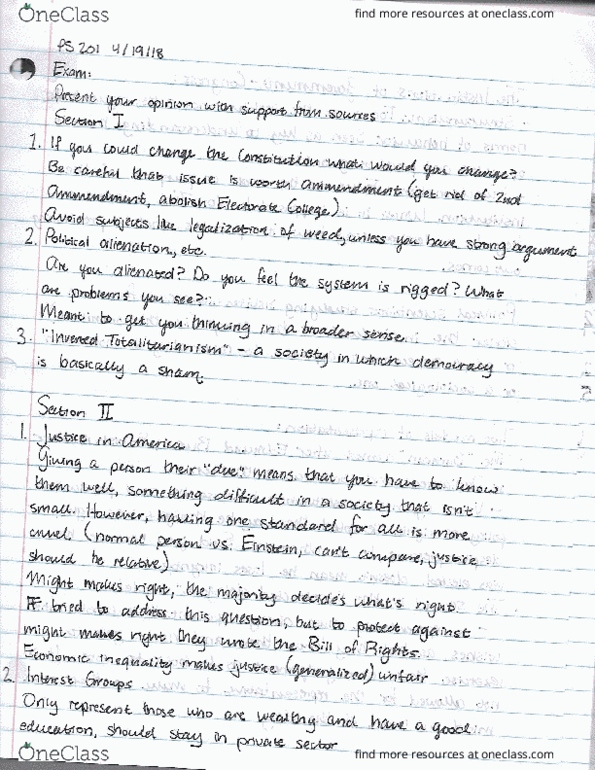 OneClass
find more resources at oneclass.com
PS 201 4/19/18
Exam:
Present your opinion with support from sources
Section I
1. If you could change the Constitution what would you change?
Be careful that issue is worth ammendment (get rid of 2nd
Ammendment, abolish Electorate College)
Avoid subjects like legalization of weed, unless you have strong argument
2. Political alienation, etc.
Are you alienated? Do you feel the system is rigged? What
are problems you see?
Meant to get you thinking in a broader sense.
3. "Inverted Totalitarianism" - a society in which democracy
is basically a sham.
Section II
1. Justice in America
Giving a person their "due" means that you have to know
them well, something difficult in a society that isn't
small. However, having one standard for all is more
cruel. (normal person vs. Einstein, can't compare, justice
should be relative)
Might makes right, the majority decides what's right.
FF tried to address this question, but to protect against
might makes right they wrote the Bill of Rights.
Economic inequality makes justice (generalized) unfair
2. Interest Groups
Only represent those who are wealthy and have a good
education, should stay in private sector
OneClass
find more resources at oneclass.com